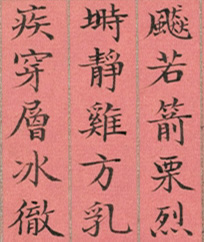 飈若箭栗烈
塒靜雞方乳
疾穿層冰徹